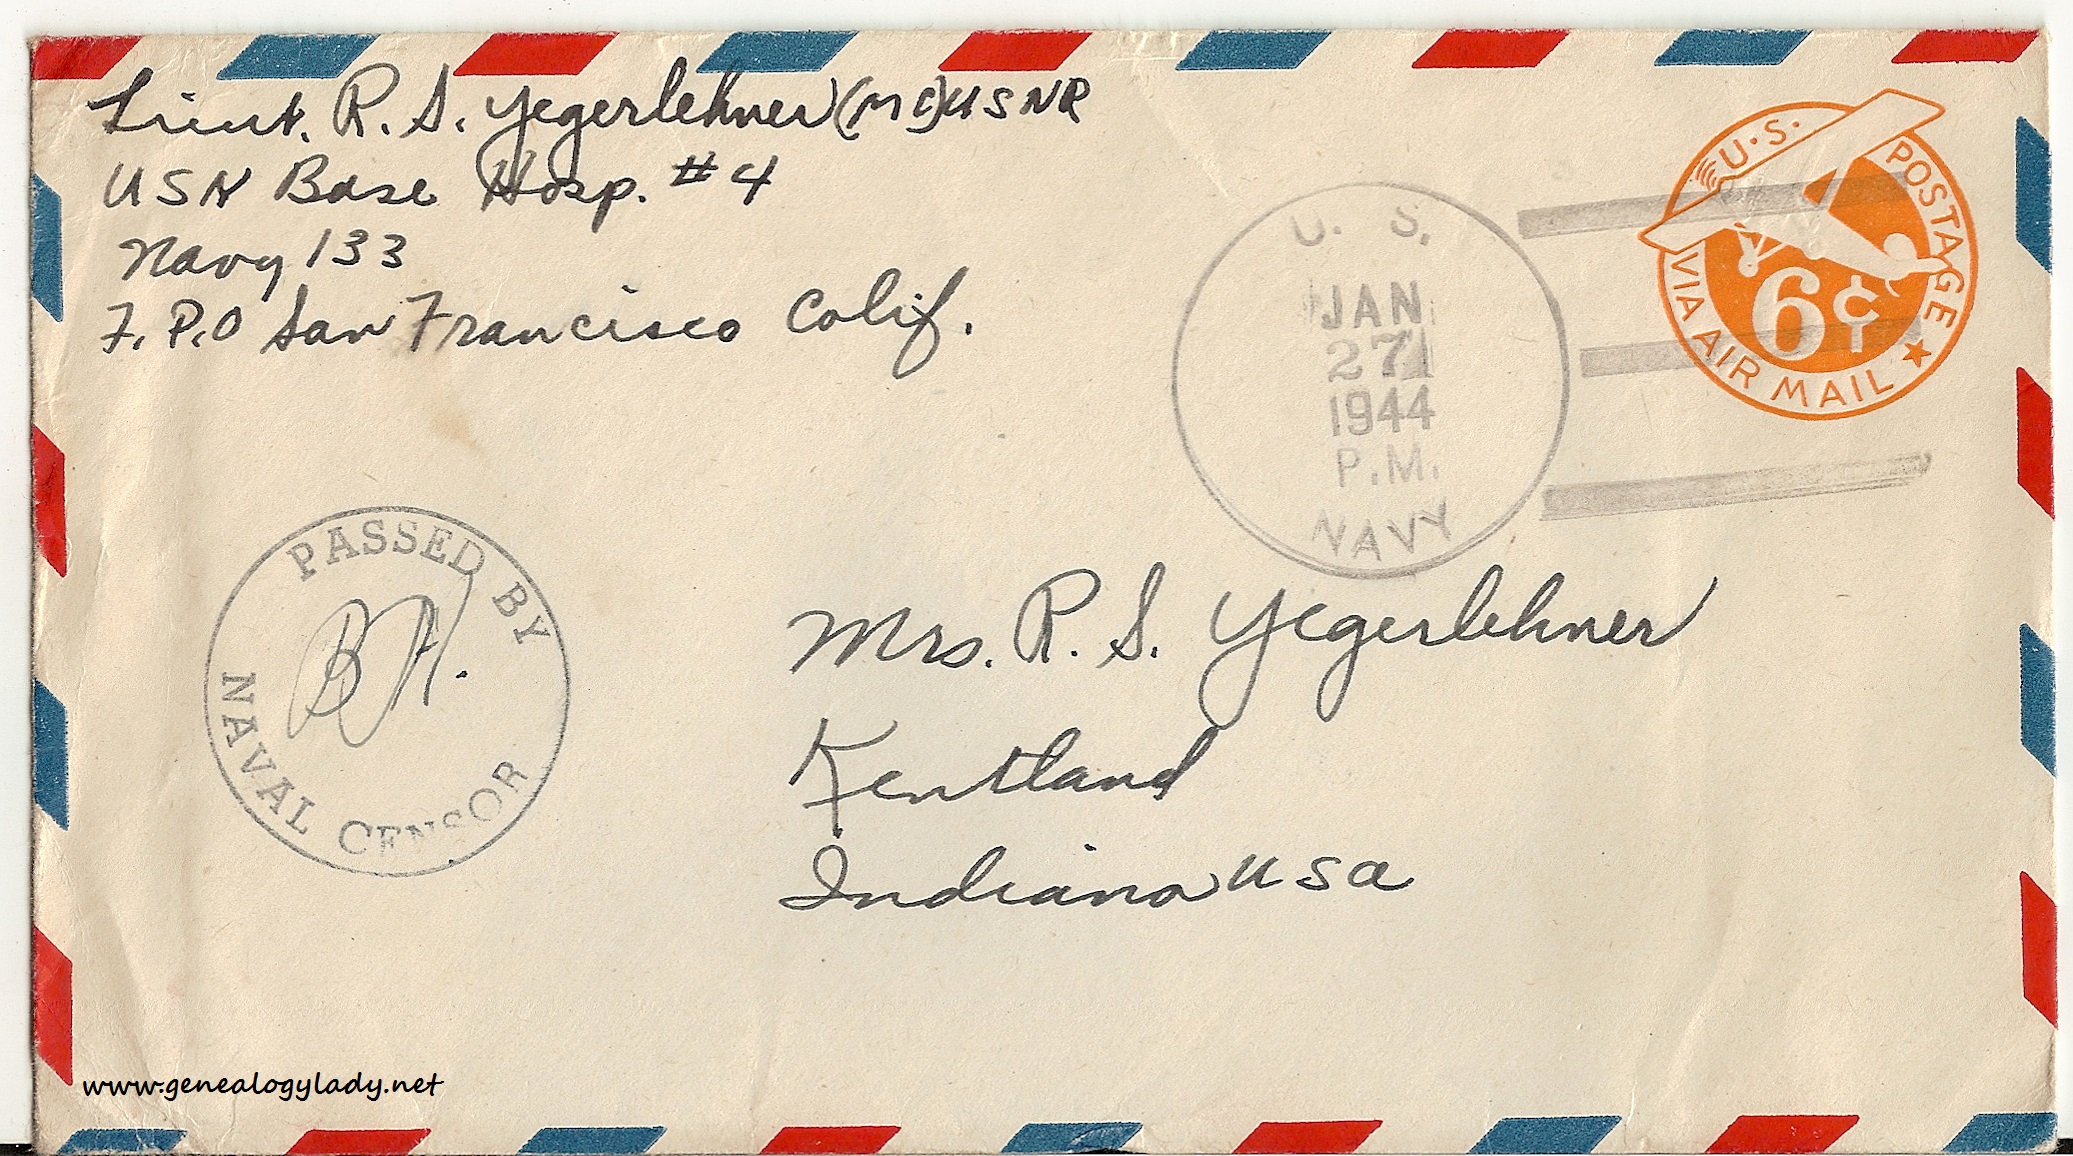 Lieut. R. S. Yegerlehner (MC) USNR
USN Base Hosp. #4
Navy 133
F.P.O San Francisco Calif.
U.S. POSTAGE
6¢
VIA AIR MAIL
U. S.
JAN
27
1944
P.M.
NAVY
PASSED BY
B.H.
NAVAL CENSOR
Mrs. R. S. Yegerlehner
Kentland
Indiana USA
www.genealogylady.net